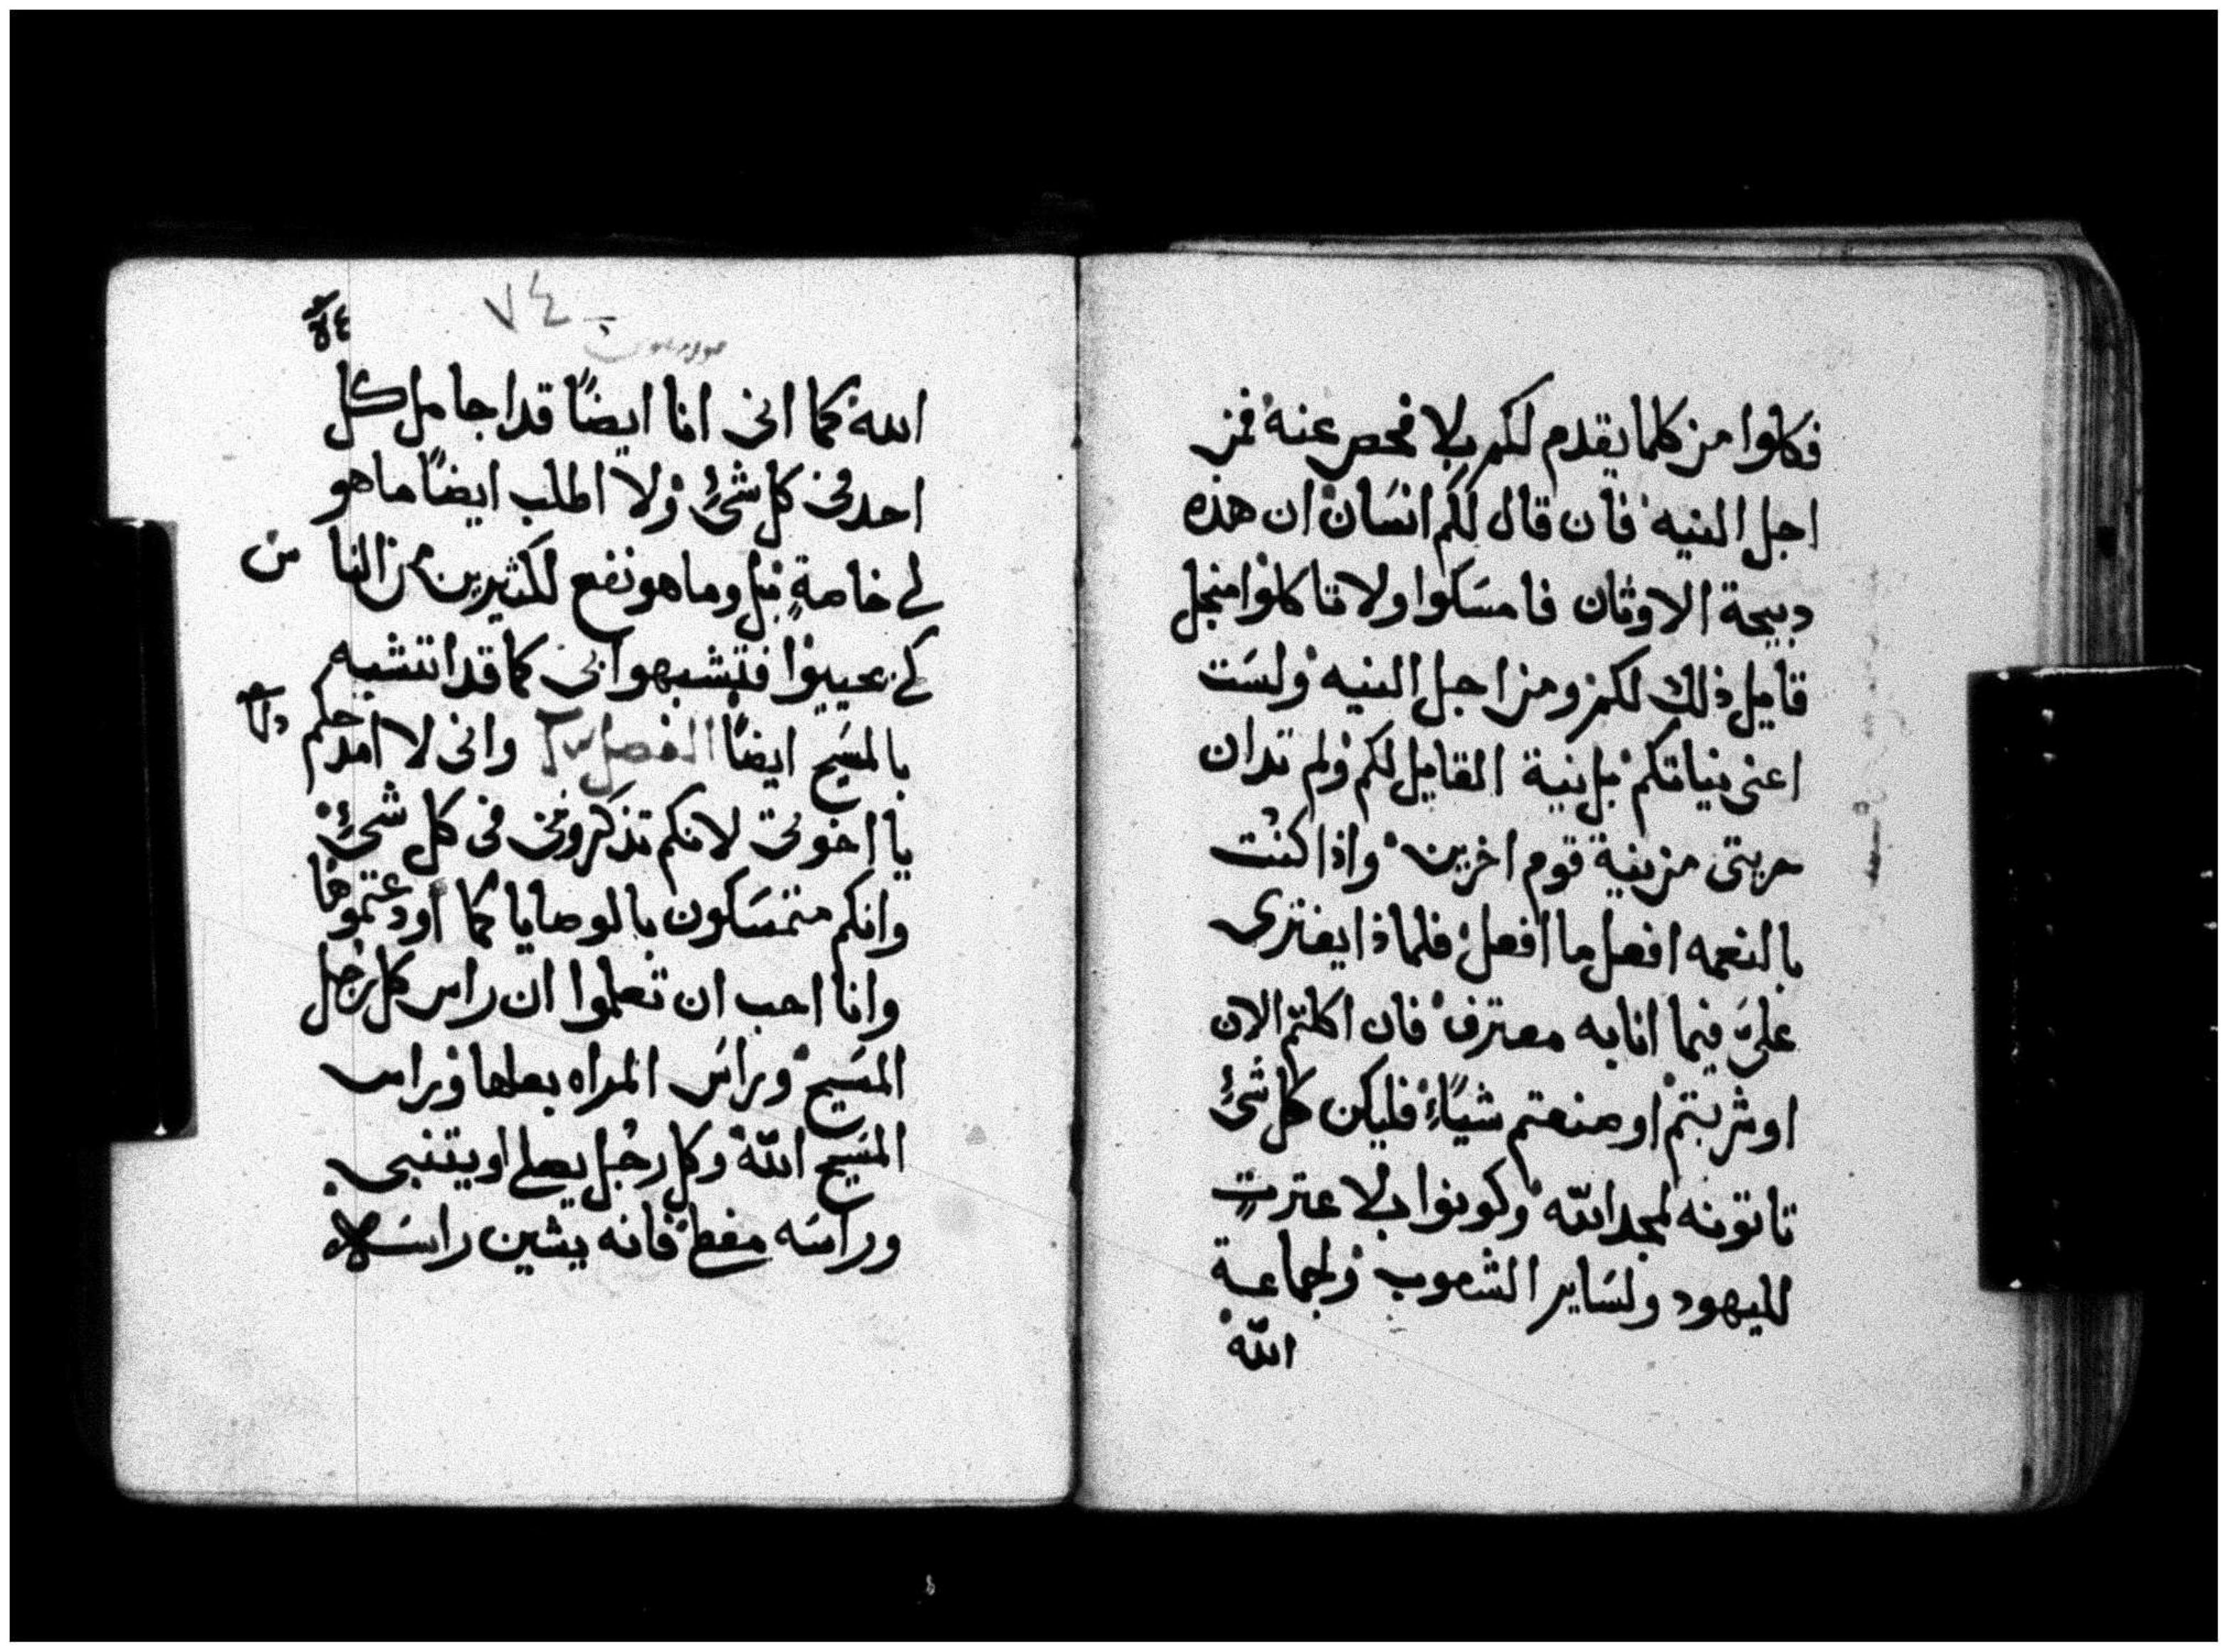 فكلوا من كلما يقدم لكم بلا فحص عنه من
اجل النيه فان قال لكم انسان ان هذه
دبيحة الاوثان فامسكوا ولا تاكلوا منجل
قايل ذلك لكم ومن اجل النيه ولست
اعنى نياتكم بل نية القايل لكم ولم تدان
حريتى من نية قوم اخرين واذا كنت
بالنعمه افعل ما افعل فلماذا يفترى
علىّ فيما انا به معترف فان اكلتم الان
او شربتم او صنعتم شياً فليكن كل شئ
تاتونه لمجد الله وكونوا بلا عترتٍ
لليهود ولساير الشعوب ولجماعة
الله
٧٤
الله كما انى انا ايضاً قد اجامل كل
احد فى كل شئ ولا اطلب ايضاً ما هو
لى خاصةٍ بل وما هو نفع للكثيرين من الناس
كى يحييوا فتشبهوا بى كما قد اتشبه
بالمسيح ايضاً الفصل وانى لا امدحكم
يا اخوتى لانكم تذكرونى فى كل شئ
وانكم متمسكون بالوصايا كما اودعتموها
وانا احب ان تعلموا ان راس كل رجل
المسيح وراس المراه بعلها وراس
المسيح الله وكل رجل يصلى او يتنبى
وراسه مغطى فانه يشين راسه